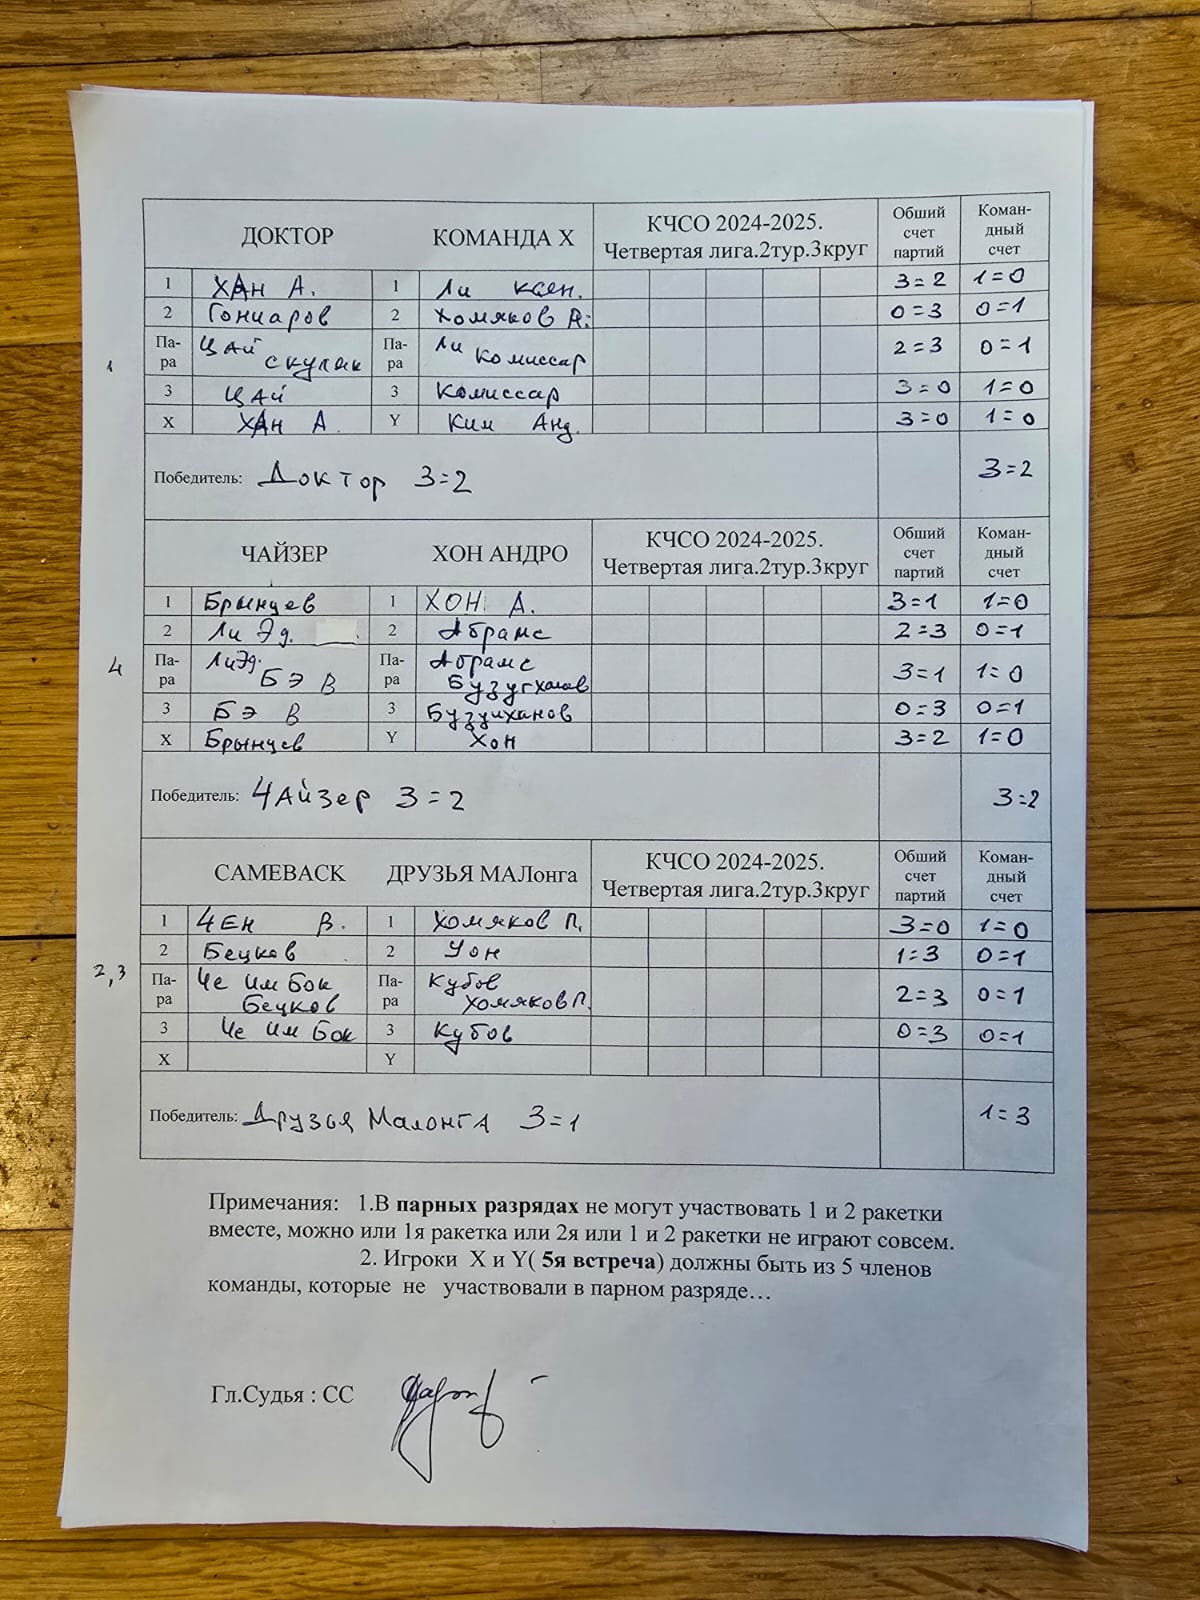 ДОКТОР КОМАНДА Х КЧСО 2024-2025. Четвертая лига.2тур.3круг Обший счет партий Коман-дный счет
1 ХАн А. 1 Ли Ксен. 3=2 1=0
2 Гончаров 2 Хомяков А. 0=3 0=1
1 Па-ра Цай Скулак Па-ра Ли Комиссар 2=3 0=1
3 Цай 3 Комиссар 3=0 1=0
Х ХАн А. Y Ким Анд. 3=0 1=0
Победитель: Доктор 3=2 3=2
ЧАЙЗЕР ХОН АНДРО КЧСО 2024-2025. Четвертая лига.2тур.3круг Обший счет партий Коман-дный счет
1 Брынцев 1 ХОН А. 3=1 1=0
2 Ли Эд. 2 Абрамс 2=3 0=1
4 Па-ра Ли Эд. Бэ В Па-ра Абрамс 3=1 1=0
3 Бэ В 3 0=3 0=1
Х Брынцев Y Хон 3=2 1=0
Победитель: Чайзер 3=2 3=2
САМЕВАСК ДРУЗЬЯ МАЛонга КЧСО 2024-2025. Четвертая лига.2тур.3круг Обший счет партий Коман-дный счет
1 Чен В. 1 Хомяков П. 3=0 1=0
2 Бецков 2 Уон 1=3 0=1
2,3 Па-ра Че Им Бок Бецков Па-ра Кубов Хомяков П. 2=3 0=1
3 Че Им Бок 3 Кубов 0=3 0=1
Х Y
Победитель: Друзья Малонга 3=1 1=3
Примечания: 1.В парных разрядах не могут участвовать 1 и 2 ракетки
вместе, можно или 1я ракетка или 2я или 1 и 2 ракетки не играют совсем.
2. Игроки Х и Y( 5я встреча) должны быть из 5 членов
команды, которые не участвовали в парном разряде…
Гл.Судья : СС